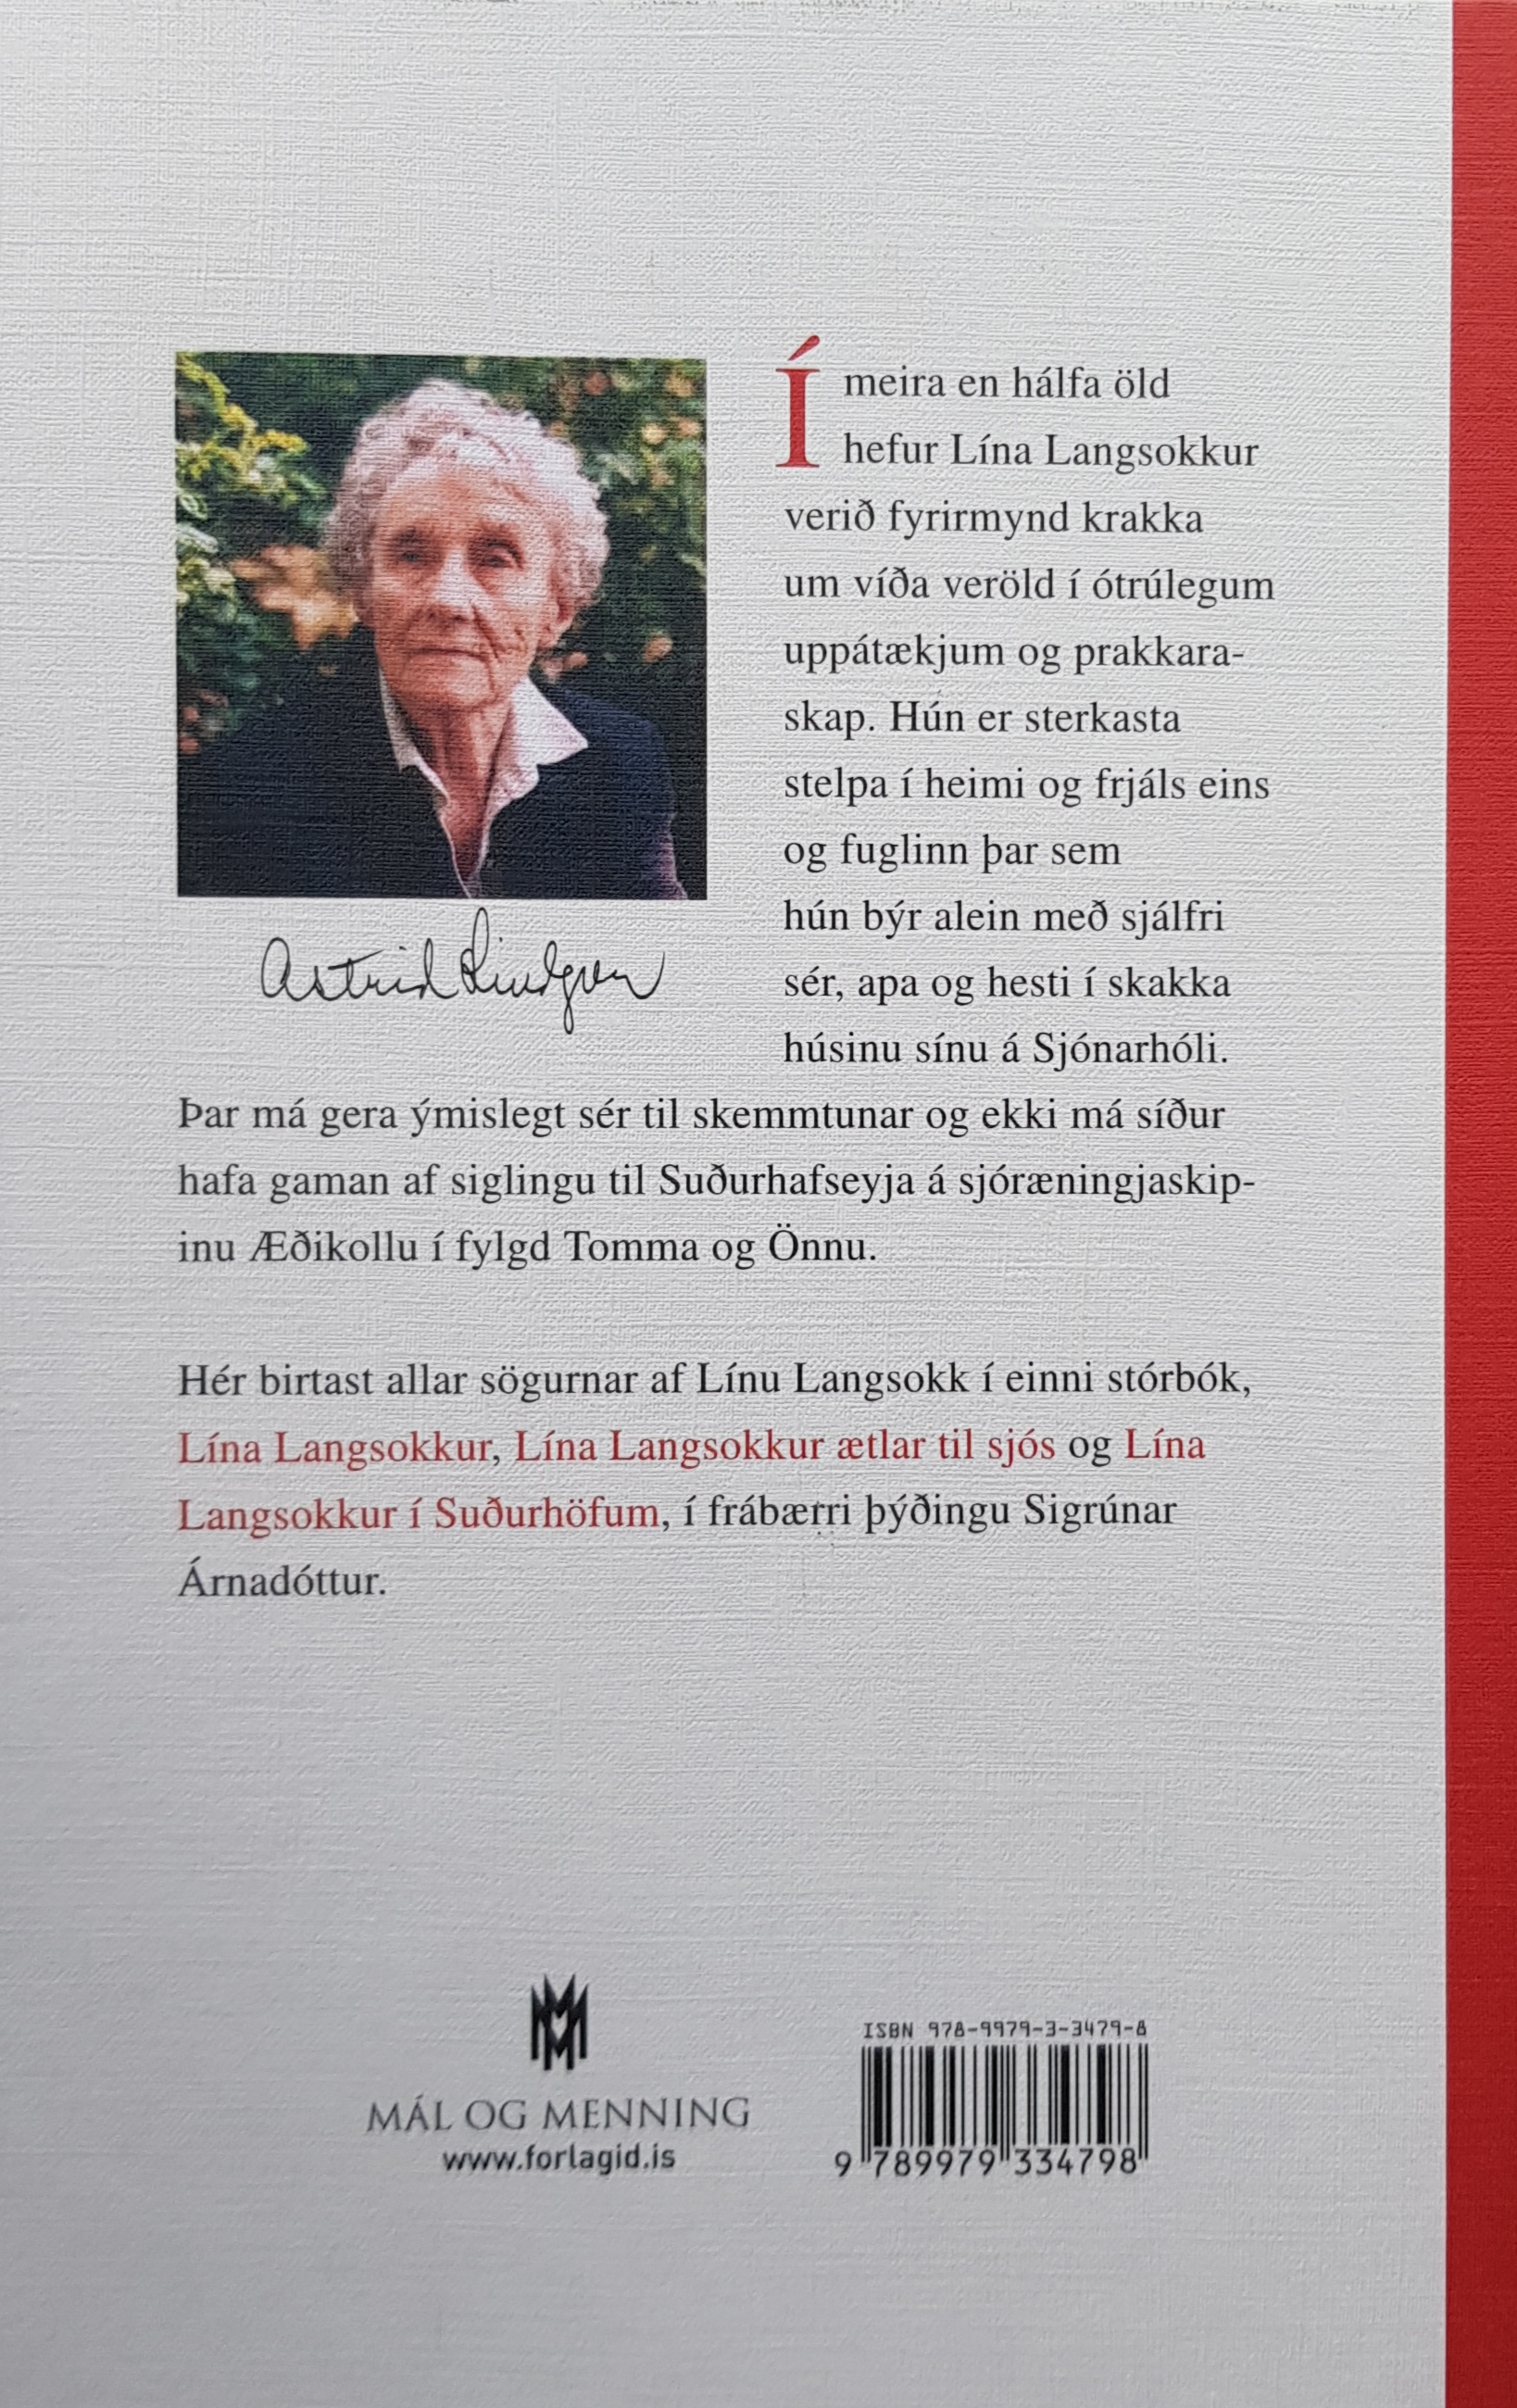 Í meira en hálfa öld
hefur Lína Langsokkur
verið fyrirmynd krakka
um víða veröld í ótrúlegum
uppátækjum og prakkara-
skap. Hún er sterkasta
stelpa í heimi og frjáls eins
og fuglinn þar sem
hún býr alein með sjálfri
sér, apa og hesti í skakka
húsinu sínu á Sjónarhóli.
Astrid Lindgren
Þar má gera ýmislegt sér til skemmtunar og ekki má síður
hafa gaman af siglingu til Suðurhafseyja á sjóræningjaskip-
inu Æðikollu í fylgd Tomma og Önnu.
Hér birtast allar sögurnar af Línu Langsokk í einni stórbók,
Lína Langsokkur, Lína Langsokkur ætlar til sjós og Lína
Langsokkur í Suðurhöfum, í frábærri þýðingu Sigrúnar
Árnadóttur.
MÁL OG MENNING
www.forlagid.is
ISBN 978-9979-3-3479-8
9 789979 334798